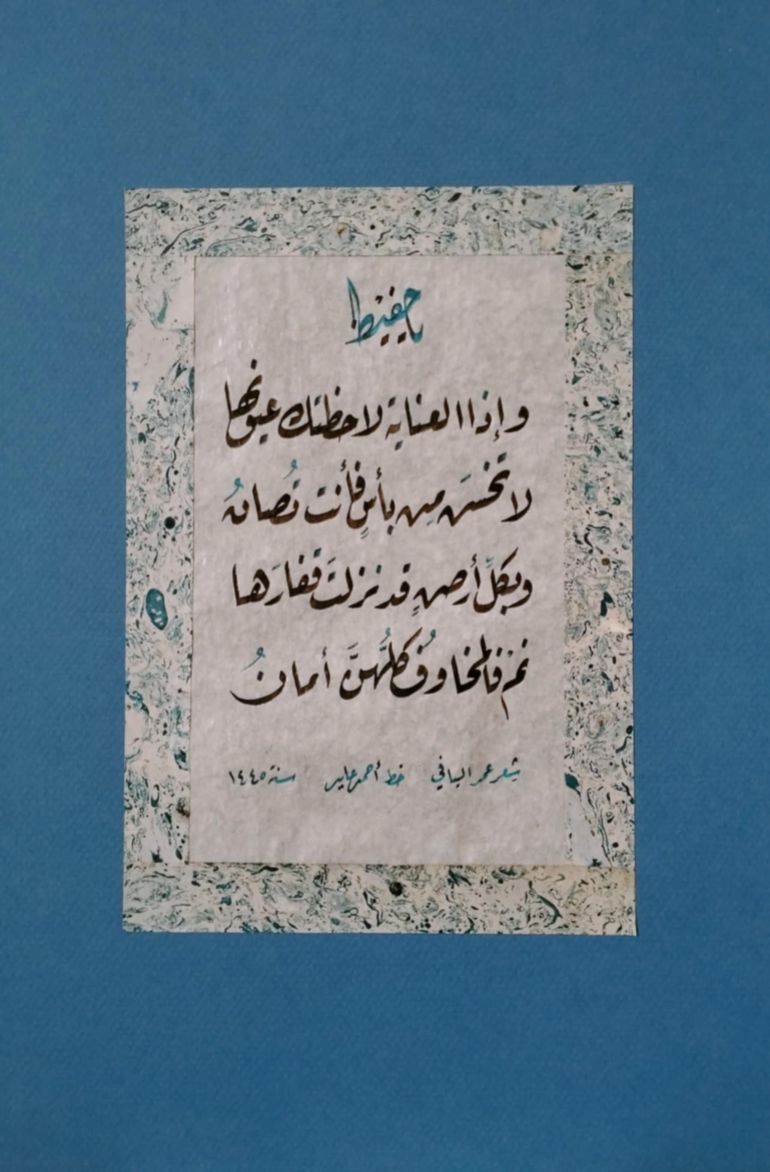 يا حفيظ
وإذا العناية لاحظتك عيونها
لا تخشَ من بأسٍ فأنت تُصانُ
وبكلِّ أرضٍ قد نزلتَ قفارَها
نم فالمخاوفُ كلُّهنَّ أمانُ
شعر عمر اليافي خط أحمد عابر سنة ١٤٤٥